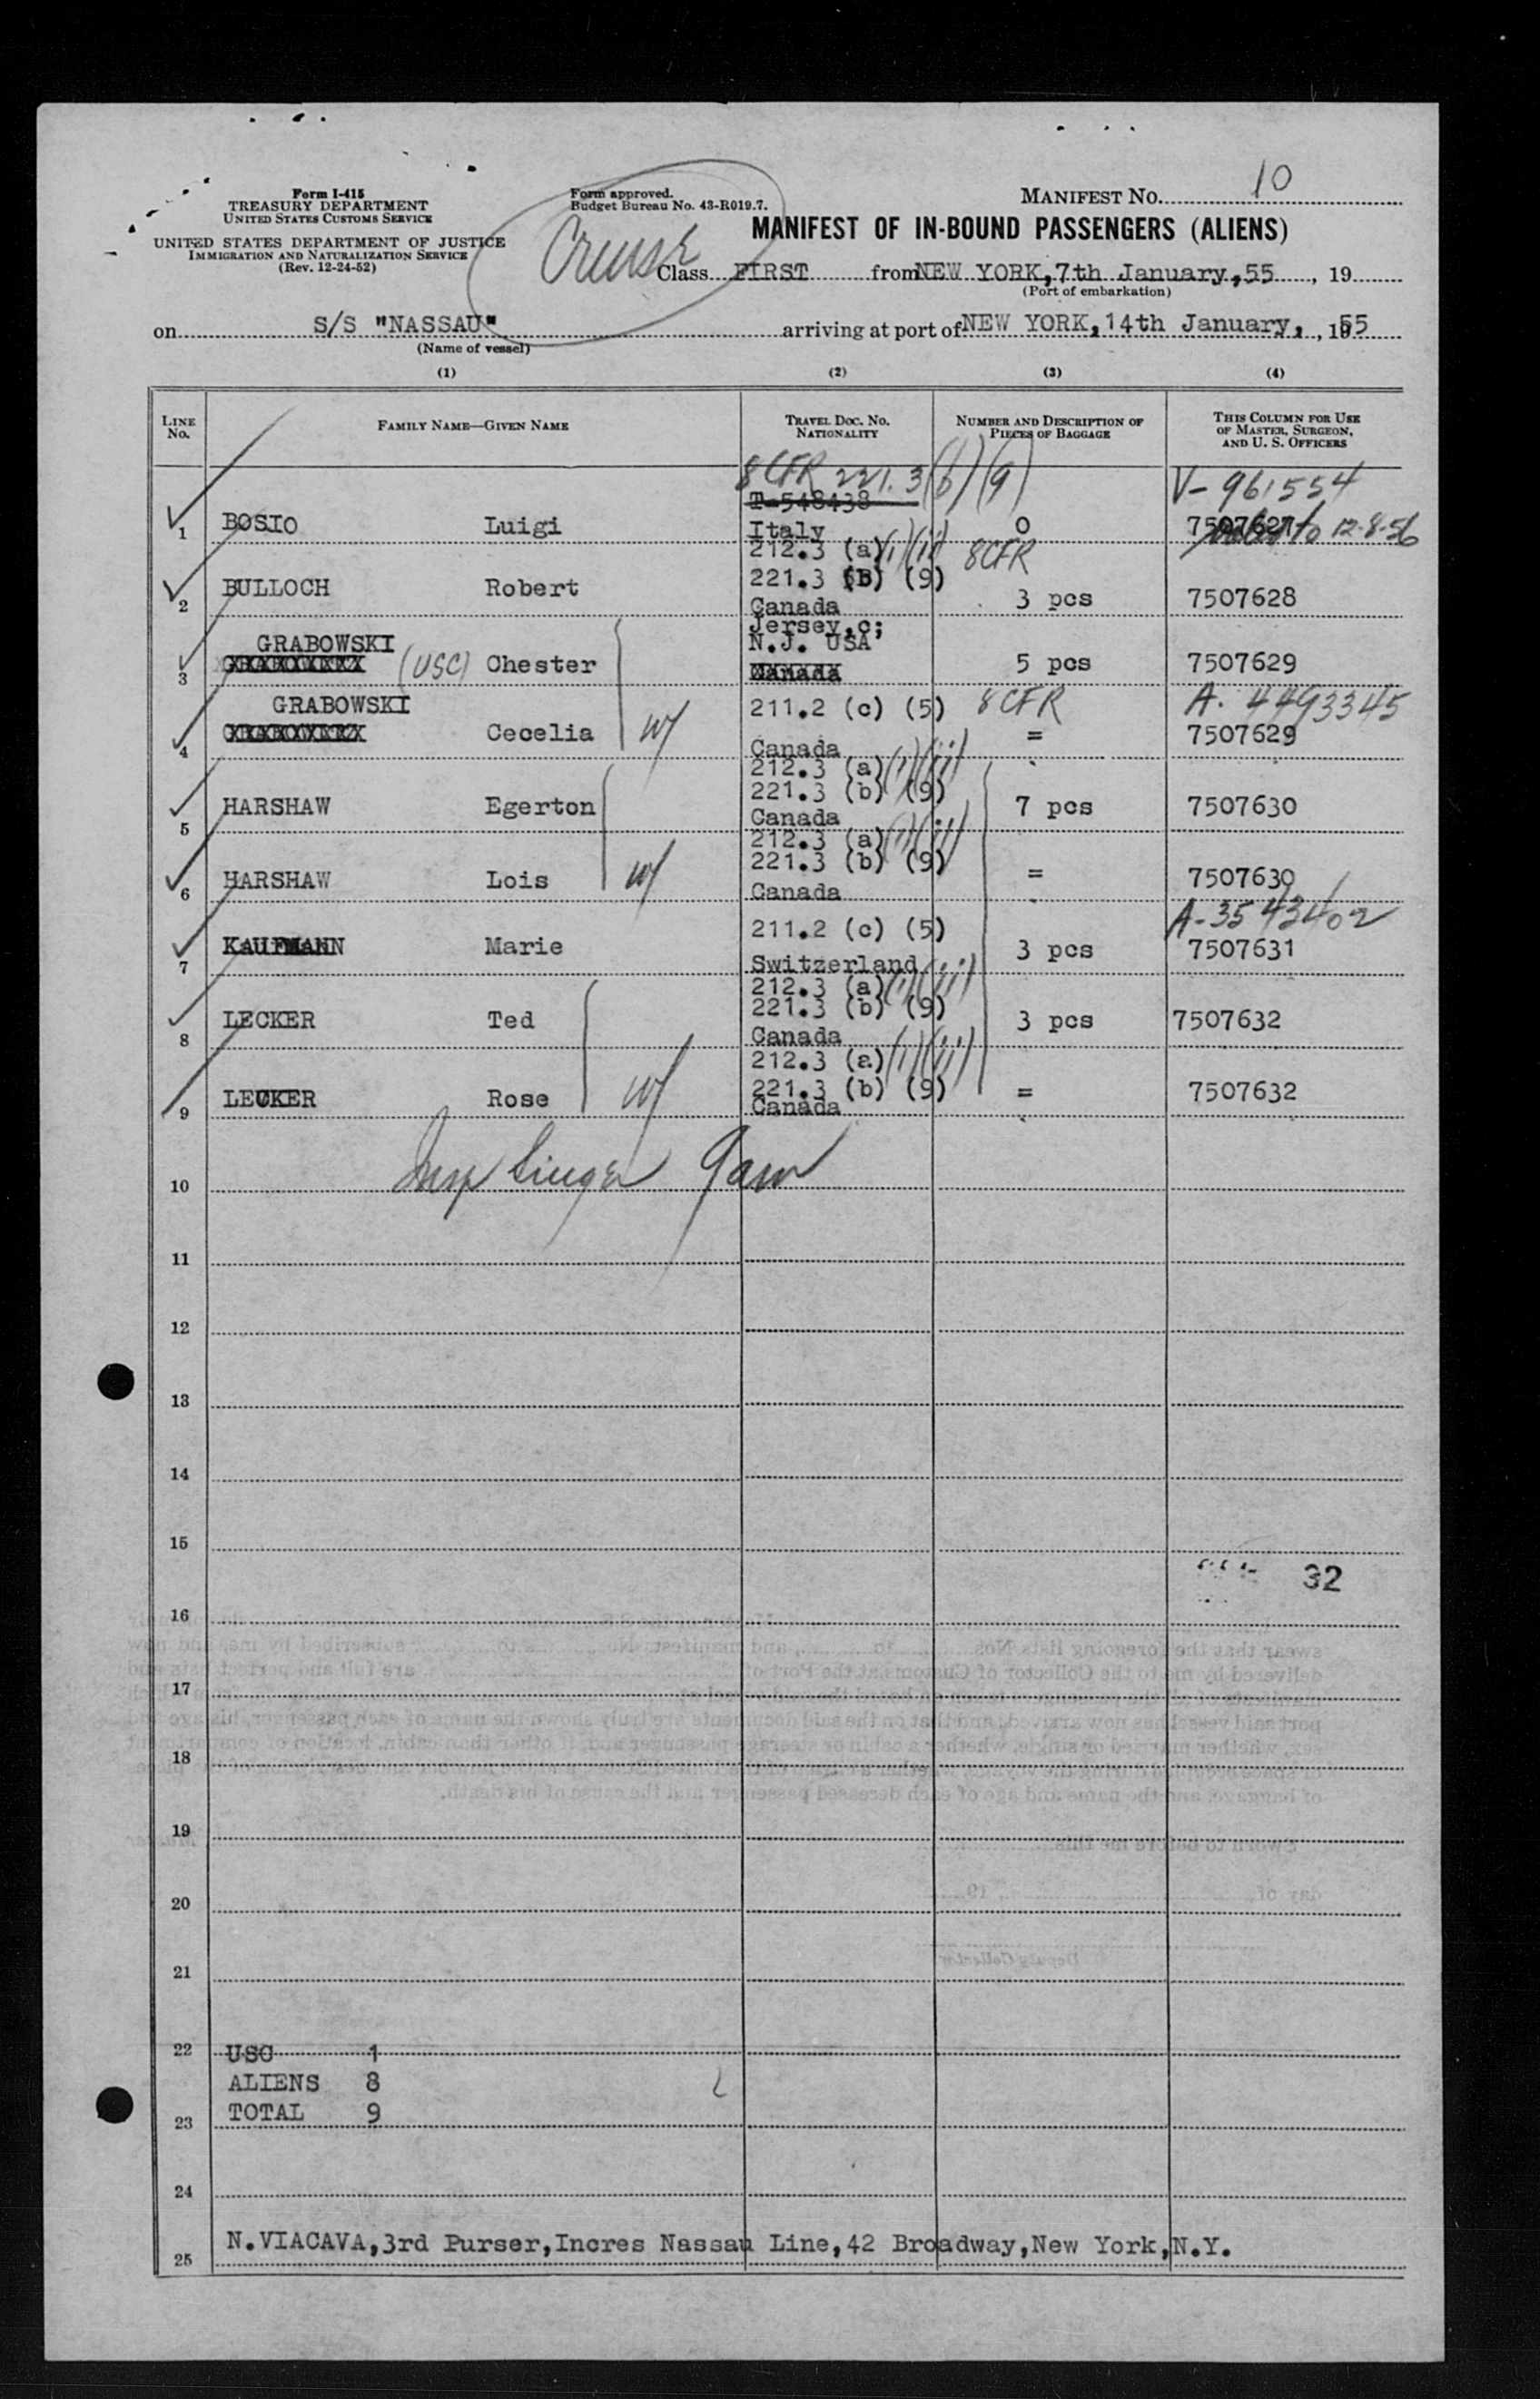 Form I-415
TREASURY DEPARTMENT
UNITED STATES CUSTOMS SERVICE
UNITED STATES DEPARTMENT OF JUSTICE
IMMIGRATION AND NATURALIZATION SERVICE
(Rev. 12-24-52)
Form approved.
Budget Bureau No. 43-R019.7.
MANIFEST NO. 10
MANIFEST OF IN-BOUND PASSENGERS (ALIENS)
Cruise
Class FIRST from NEW YORK, 7th January, 55, 19
(Port of embarkation)
on S/S "NASSAU" arriving at port of NEW YORK, 14th January, , 1955
(Name of vessel)
(1) (2) (3) (4)
LINE NO. FAMILY NAME—GIVEN NAME TRAVEL DOC. NO. NATIONALITY NUMBER AND DESCRIPTION OF PIECES OF BAGGAGE THIS COLUMN FOR USE OF MASTER, SURGEON, AND U. S. OFFICERS
8 CFR 221.3 (b) (9) V-961554
T-548438
1 BOSIO Luigi Italy 0 7507627 to 12-8-56
212.3 (a) (i) (ii) 8CFR
221.3 (B) (9)
2 BULLOCH Robert Canada 3 pcs 7507628
Jersey.c;
N.J. USA
3 GRABOWSKI (USC) Chester Canada 5 pcs 7507629
211.2 (c) (5) 8 CFR A. 4493345
4 GRABOWSKI Cecelia W/ Canada = 7507629
212.3 (a) (i) (ii)
221.3 (b) (9)
5 HARSHAW Egerton Canada 7 pcs 7507630
212.3 (a) (i) (ii)
221.3 (b) (9)
6 HARSHAW Lois W/ Canada = 7507630
211.2 (c) (5) A-3543402
7 KAUFMANN Marie Switzerland 3 pcs 7507631
212.3 (a) (i) (ii)
221.3 (b) (9)
8 LECKER Ted Canada 3 pcs 7507632
212.3 (a) (i) (ii)
221.3 (b) (9)
9 LECKER Rose W/ Canada = 7507632
Insp Singer
10
11
12
13
14
15
32
16
17
18
19
20
21
22 USC 1
ALIENS 8
23 TOTAL 9
24
25 N.VIACAVA,3rd Purser,Incres Nassau Line,42 Broadway,New York,N.Y.